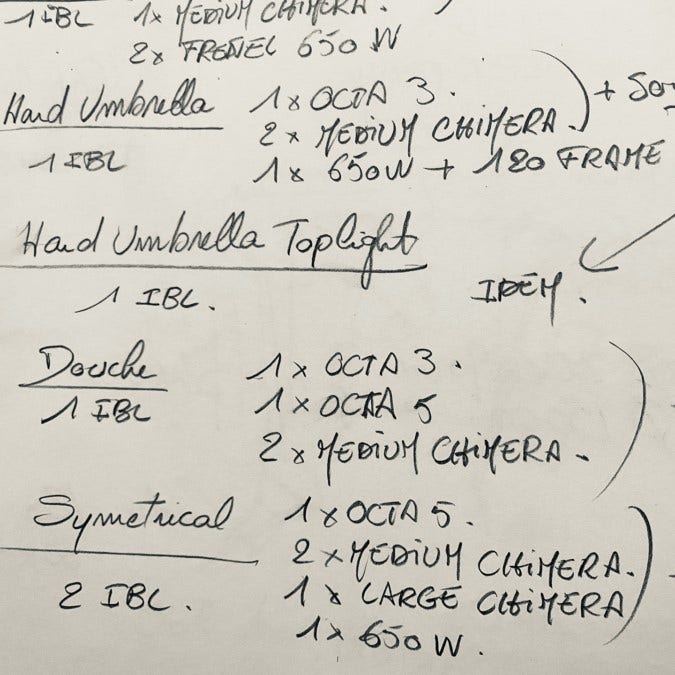 1 IBL 1x MEDIUM CHIMERA.
2x FRENEL 650 W
Hard Umbrella 1x OCTA 3.
2x MEDIUM CHIMERA.
1 IBL
1x 650W + 120 FRAME
Hard Umbrella Toplight
1 IBL. IDEM.
Douche 1x OCTA 3.
1 IBL 1x OCTA 5
2x MEDIUM CHIMERA.
Symetrical 1x OCTA 5.
2x MEDIUM CHIMERA.
2 IBL. 1x LARGE CHIMERA
1x 650 W.